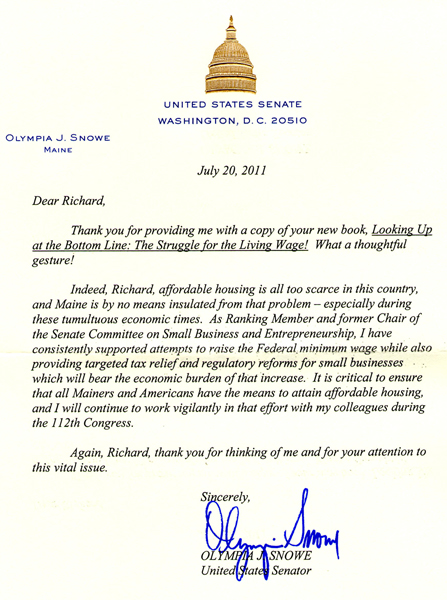 UNITED STATES SENATE
WASHINGTON, D. C. 20510
OLYMPIA J. SNOWE
MAINE
July 20, 2011
Dear Richard,
Thank you for providing me with a copy of your new book, Looking Up
at the Bottom Line: The Struggle for the Living Wage! What a thoughtful
gesture!
Indeed, Richard, affordable housing is all too scarce in this country,
and Maine is by no means insulated from that problem – especially during
these tumultuous economic times. As Ranking Member and former Chair of
the Senate Committee on Small Business and Entrepreneurship, I have
consistently supported attempts to raise the Federal minimum wage while also
providing targeted tax relief and regulatory reforms for small businesses
which will bear the economic burden of that increase. It is critical to ensure
that all Mainers and Americans have the means to attain affordable housing,
and I will continue to work vigilantly in that effort with my colleagues during
the 112th Congress.
Again, Richard, thank you for thinking of me and for your attention to
this vital issue.
Sincerely,
Olympia Snowe
OLYMPIA J. SNOWE
United States Senator